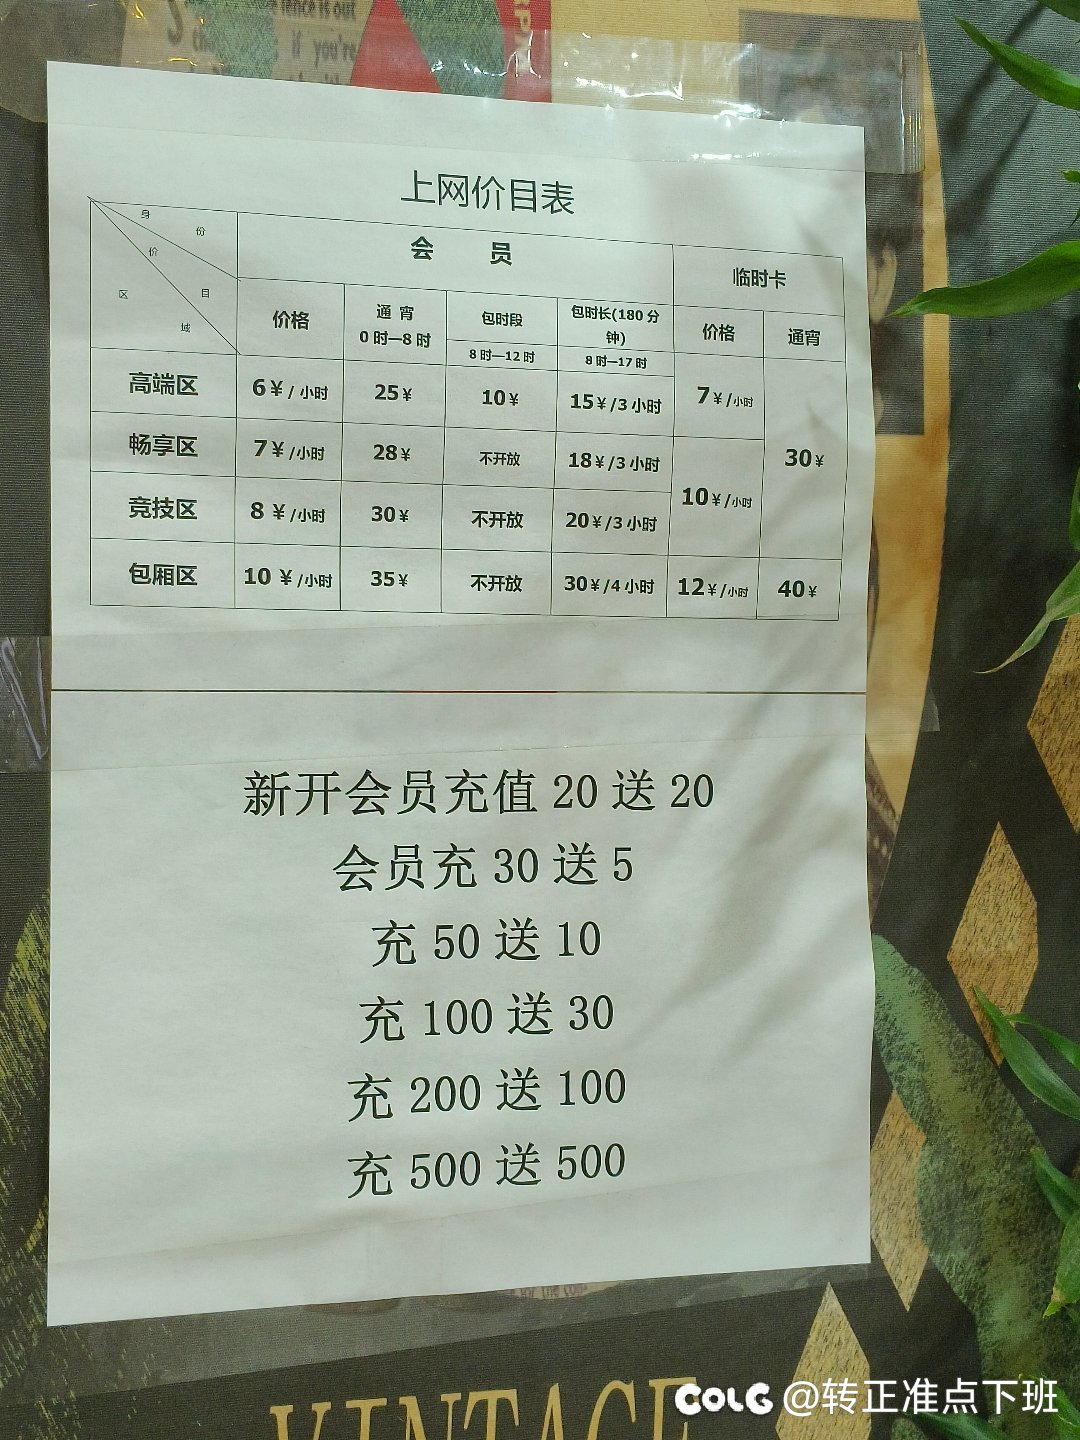 ence is out
if you're
上网价目表
身份
价目
区域
会 员
临时卡
价格
通 宵
0时—8时
包时段
8时—12时
包时长(180分钟)
8时—17时
价格
通宵
高端区 6¥/小时 25¥ 10¥ 15¥/3小时 7¥/小时 30¥
畅享区 7¥/小时 28¥ 不开放 18¥/3小时 10¥/小时
竞技区 8¥/小时 30¥ 不开放 20¥/3小时
包厢区 10¥/小时 35¥ 不开放 30¥/4小时 12¥/小时 40¥
新开会员充值20送20
会员充30送5
充50送10
充100送30
充200送100
充500送500
VINTAGE
COLG @转正准点下班